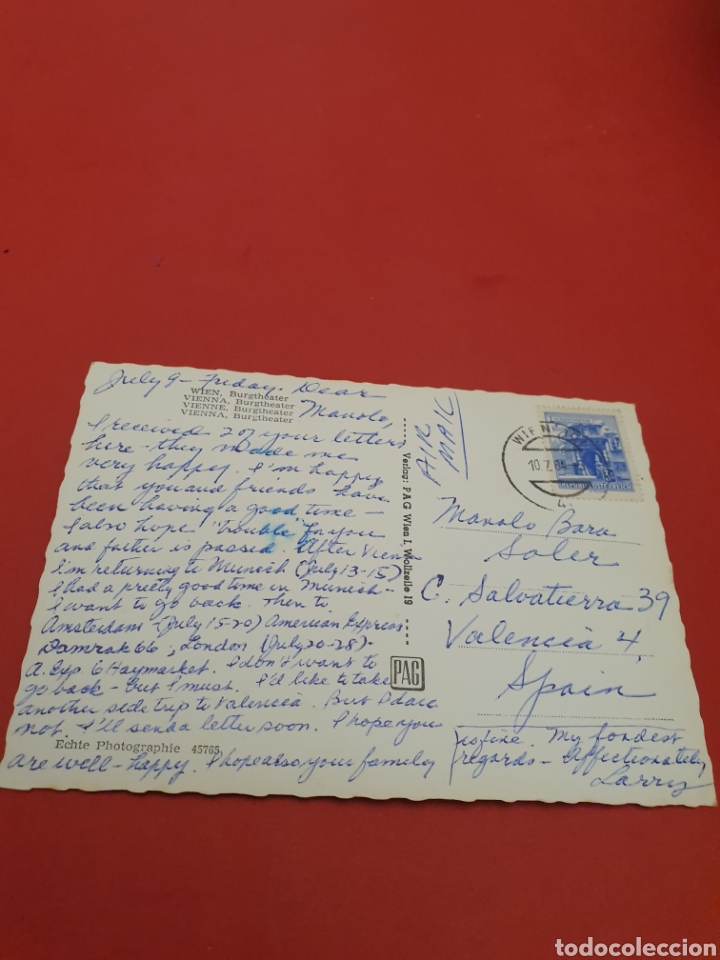 July 9 - Friday. Dear
WIEN, Burgtheater
VIENNA, Burgtheater
VIENNE, Burgtheater
VIENNA, Burgtheater
Manolo,
I received 2 of your letters
here - they made me
very happy. I'm happy
that you and friends have
been having a good time -
I also hope "trouble" for you
and father is passed. After Vienna
I'm returning to Munich (July 13-15)
I had a pretty good time in Munich -
I want to go back. Then to
Amsterdam - (July 15-20) American Express
Damrak 66, London (July 20-28) -
A. Exp 6 Haymarket. I don't want to
go back - But I must. I'd like to take
another side trip to Valencia. But I dare
not. I'll send a letter soon. I hope you
Echte Photographie 45765
are well - happy. I hope also your family
is fine. My fondest
regards - Affectionately
Larry
Verlag: PAG Wien I, Wollzeile 19
PAG
AIR
MAIL
WIEN
10.7.
Manolo
Soler
C. Salvatierra 39
Valencia 4,
Spain
todocoleccion